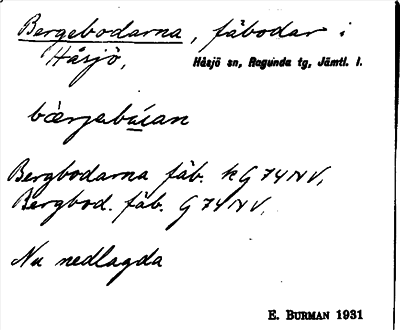 Bergebodarna, fäbodar i
Håsjö,
Håsjö sn, Ragunda tg, Jämtl. l.
bærjabúan
Bergbodarna fäb. kG74NV,
Bergbod. fäb. G74NV.
Nu nedlagda
E. BURMAN 1931